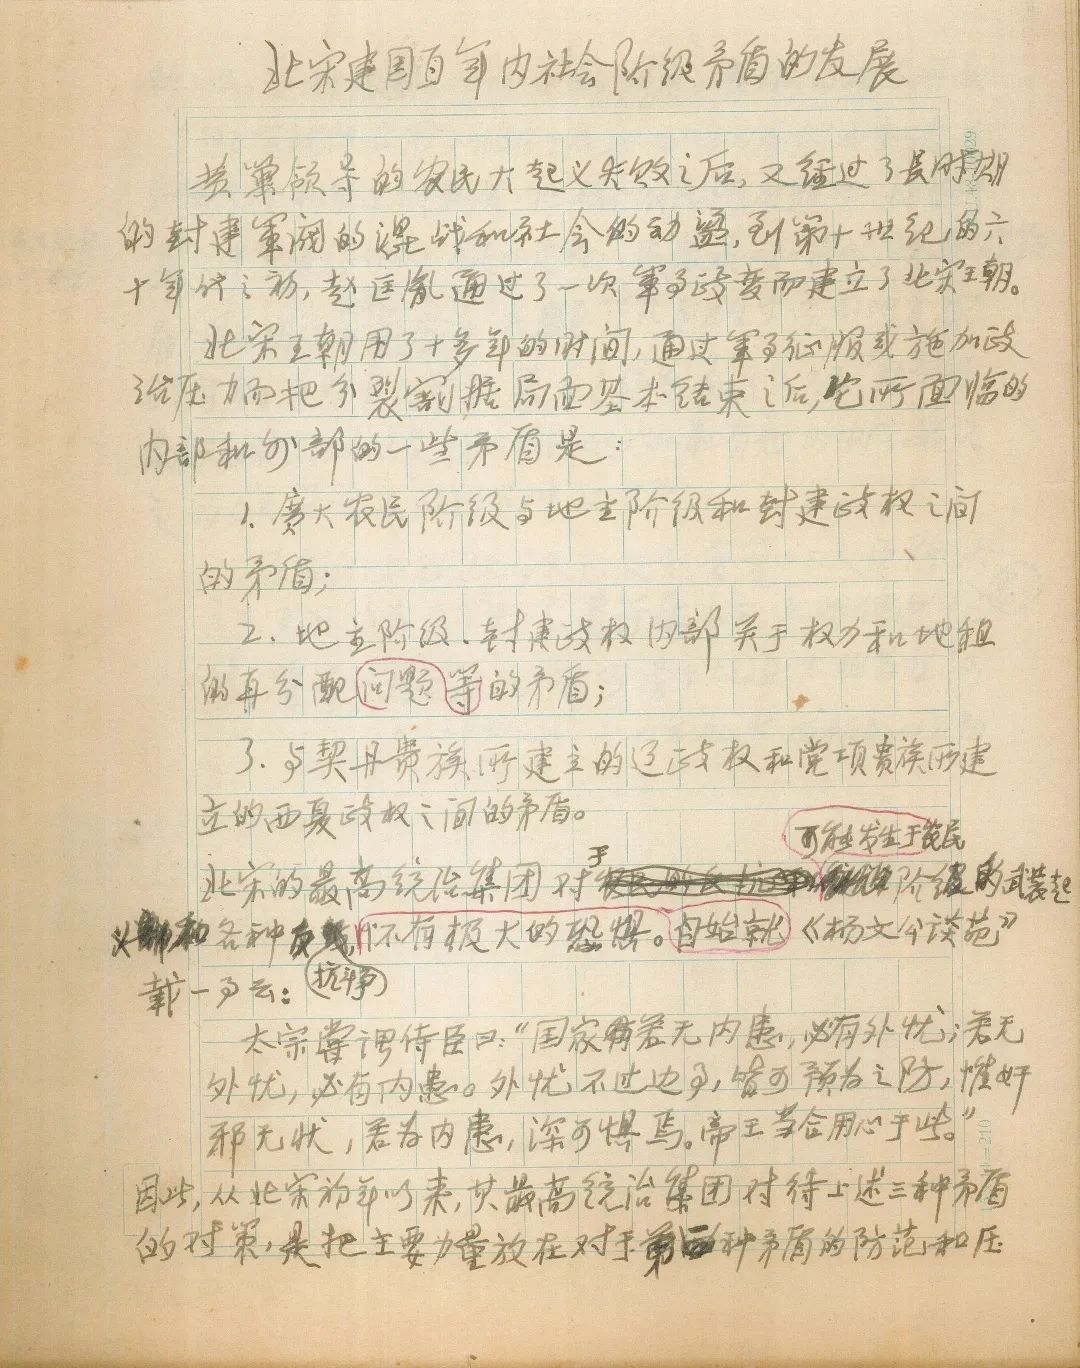 北宋建国百年内社会阶级矛盾的发展
黄巢领导的农民大起义失败之后，又经过了長时期
的封建軍阀的混战和社会的动盪，到第十世纪的六
十年代之初，赵匡胤通过了一次軍事政变而建立了北宋王朝。
北宋王朝用了十多年的时间，通过軍事征服或施加政
治压力而把分裂割据局面基本结束之后，它所面临的
内部和外部的一些矛盾是：
1. 廣大农民阶级与地主阶级和封建政权之间
的矛盾；
2. 地主阶级、封建政权内部关于权力和地租
的再分配问题等的矛盾；
3. 与契丹贵族所建立的辽政权和党项贵族所建
立的西夏政权之间的矛盾。
可能发生于农民
北宋的最高统治集团对于阶级的武装起
义和各种怀有极大的恐惧。自始就《杨文公谈苑》
抗斗争
载一事云：
太宗嘗谓侍臣曰：“国家若无内患，必有外忧；若无
外忧，必有内患。外忧不过边事，皆可预为之防，惟奸
邪无状，若为内患，深可惧焉。帝王当合用心于此。”
因此，从北宋初年以来，其最高统治集团对待上述三种矛盾
的对策，是把主要力量放在对于第种矛盾的防范和压